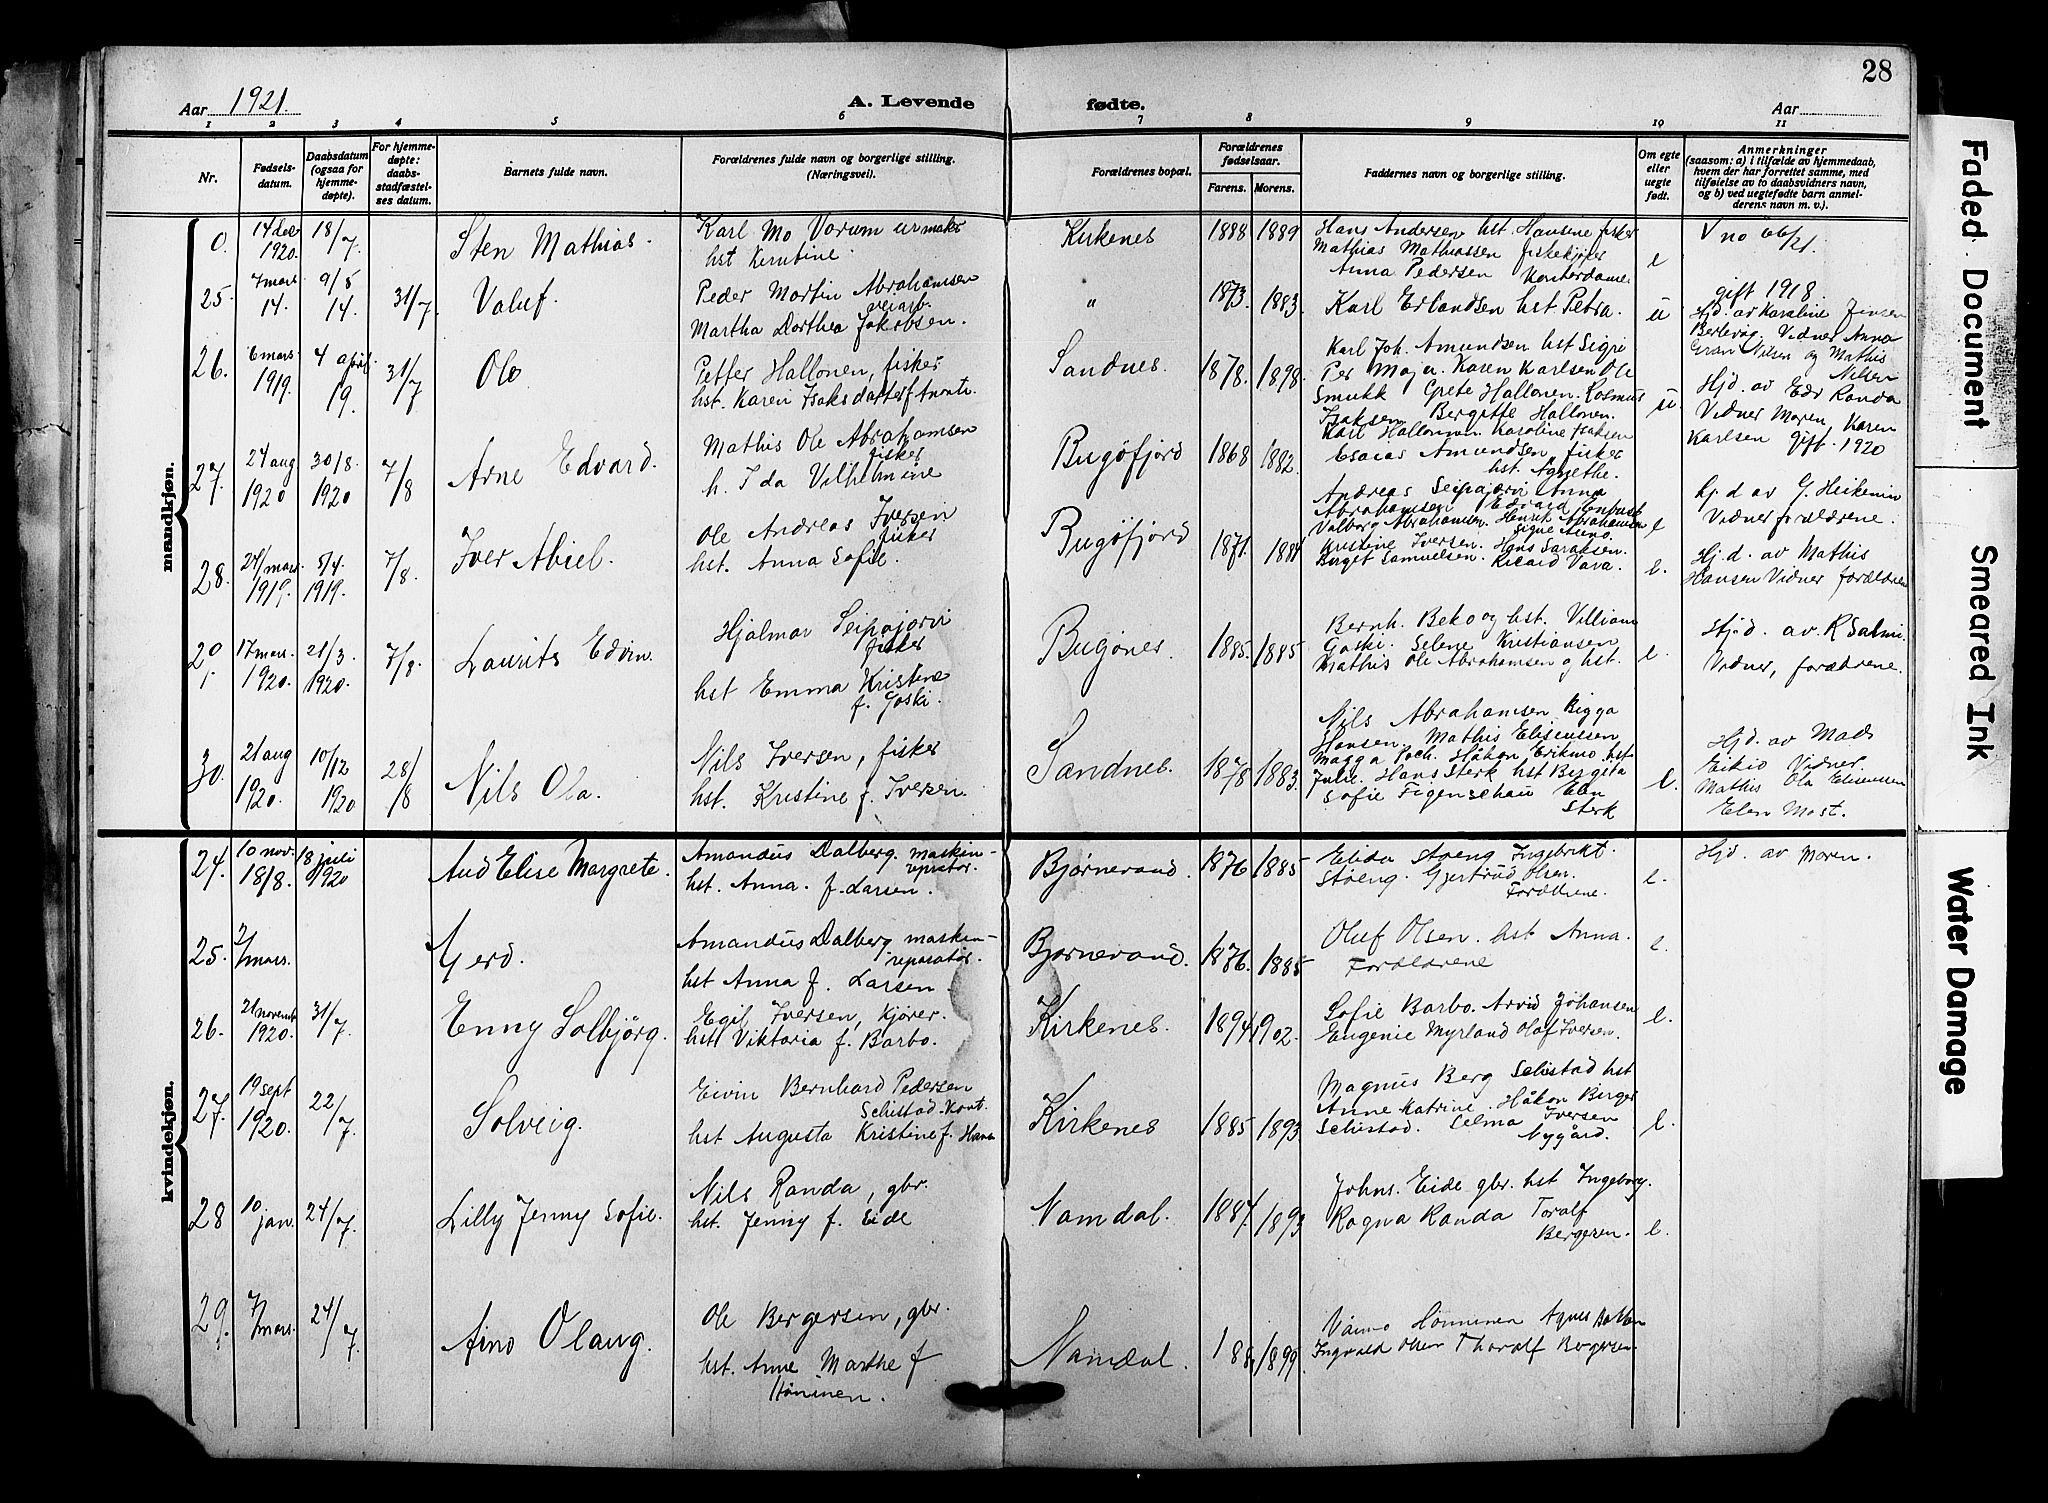 28
Aar 1921.
A. Levende
fødte.
Aar
1 2 3 4 5 6 7 8 9 10 11
Nr.
Fødsels-
datum.
Daabsdatum
(ogsaa for
hjemme-
døpte).
For hjemme-
døpte:
daabs-
stadfæstel-
ses datum.
Barnets fulde navn.
Forældrenes fulde navn og borgerlige stilling.
(Næringsvei).
Forældrenes bopæl.
Forældrenes
fødselsaar.
Farens. Morens.
Faddernes navn og borgerlige stilling.
Om egte
eller
uegte
født.
Anmerkninger
(saasom: a) i tilfælde av hjemmedaab,
hvem der har forrettet samme, med
tilføielse av to daabsvidners navn,
og b) ved uegtefødte barn anmel-
derens navn m. v.).
mandkjøn.
0. 14 dec 1920. 18/7.
Sten Mathias.
Karl Mo Vorum urmaker
hst
Kirkenes 1888 1889
Hans Andersen hst. Hansine fisker
Mathias Mathiassen
Anna Pedersen Kontordame
e
V no 66/21.
25. 7 mars 14. 9/5 14. 31/7.
Valuf.
Peder Martin Abrahamsen
veiarb.
Martha Dorthea Jakobsen.
" 1873. 1883.
Karl Erlandsen hst Petra.
u
gift 1918.
Hjd. av Karoline Jensen
Berlevåg. Vidner Anna
Gran Nilsen og Mathis
Nilsen
26. 6 mars 1919. 4 april 19. 31/7
Ole
Petter Hallonen, fisker
hst. Karen Isaksdatter
Sandnes. 1878. 1898.
Karl Joh. Amundsen hst Sigri
Per Maja. Karen Karlsen Ole
Smukk Grete Hallonen. Rasmus
Isaksen. Bergitte Hallonen.
u.
Hjd. av Edv Randa
Vidner Moren, Karen
Karlsen gift 1920
27. 24 aug 1920 30/8. 1920 7/8
Arne Edvard.
Mathis Ole Abrahamsen
fisker
h. Ida Vilhelmine
Bugøfjord 1868 1882.
Karl Hallonen Karoline Isaksen
Esaias Amundsen, fisker
hst. Agnethe.
Andreas Seipajærvi Anna
Abrahamsen
e
hjd av G. Heikenin
Vidner forældrene.
28. 24/mars 1919. 5/4. 1919. 7/8.
Iver Abiel.
Ole Andreas Iversen
fisker
hst. Anna Sofie.
Bugøfjord 1871. 1884
Valborg Abrahamsen. Henrik Abrahamsen
Kristine Iversen. Hans Saraksen.
Berget Samuelsen. Ricard Vara.
e.
Hj.d. av Mathis
Hansen Vidner forældrene
29. 17 mars. 1920. 21/3. 1920. 7/8.
Laurits Edvin.
Hjalmar Seipajærvi
fisker
hst Emma Kristine
f. Gaski.
Bugønes. 1885. 1885
Bernh. Beko og hst. Villiam
Gaski. Selene Kristiansen
Mathis Ole Abrahamsen og hst.
e.
Hjd. av. R Salmi.
Vidner, forældrene.
30. 21 aug 1920. 10/12 1920 28/8
Nils Ola.
Nils Iversen, fisker
hst. Kristine f. Iversen.
Sandnes. 1878 1883.
Nils Abrahamsen Bigga
Hansen. Mathis Elisenssen
Magga Poch. Håkon Erikmo hst
Julie. Hans Sterk hst Bergeta
Sofie Figenschau Elen
Sterk
e.
Hjd. av Mads
Eikio Vidner.
Mathis Ola Elisenssen
Elen Mast.
kvindekjøn.
24. 10 nov. 1818. 18 juli 1920
Aud Elise Margrete.
Amandus Dalberg. maskin-
reprator.
hst. Anna. f. Larsen.
Bjørnevand. 1876 1885.
Elida Støeng Ingebrikt.
Støeng. Gjertrud Olsen.
Forældrene.
e.
Hjd. av Moren.
25. 2/mars.
Gerd.
Amandus Dalberg maskin-
reparatør.
hst Anna f. Larsen.
Bjørnevand. 1876. 1885
Oluf Olsen. hst Anna.
Forældrene
e.
26. 21 novemb 1920. 31/7.
Enny Solbjörg.
Egil Iversen, Kjører.
hst Viktoria f. Barbo.
Kirkenes. 1894. 1902.
Sofie Barbo. Arvid Johansen
Eugenie Myrland Olaf Iversen.
e.
27. 19 sept 1920. 22/7.
Solveig.
Eivin Bernhard Pedersen
Schistad. Kont.
hst Augusta Kristine f. Hansen
Kirkenes 1885 1893
Magnus Berg Schistad hst
Anne Katrine. Håkon Birger
Schistad. Selma Iversen
Nygård.
e.
28 10 jan. 24/7.
Lilly Jenny Sofie.
Nils Randa, gbr.
hst. Jenny f. Eide
Namdal. 1887. 1893
Johns. Eide gbr. hst Ingeborg.
Ragna Randa Toralf
Bergesen.
e.
29. 7/mars. 24/7.
Aino Olaug.
Ole Bergersen, gbr.
hst. Anne Marthe f
Høninen.
Namdal. 188 1899.
Väinö Hönninen Agnes
Ingvald Olsen Thoralf Bergersen.
Faded Document
Smeared Ink
Water Damage